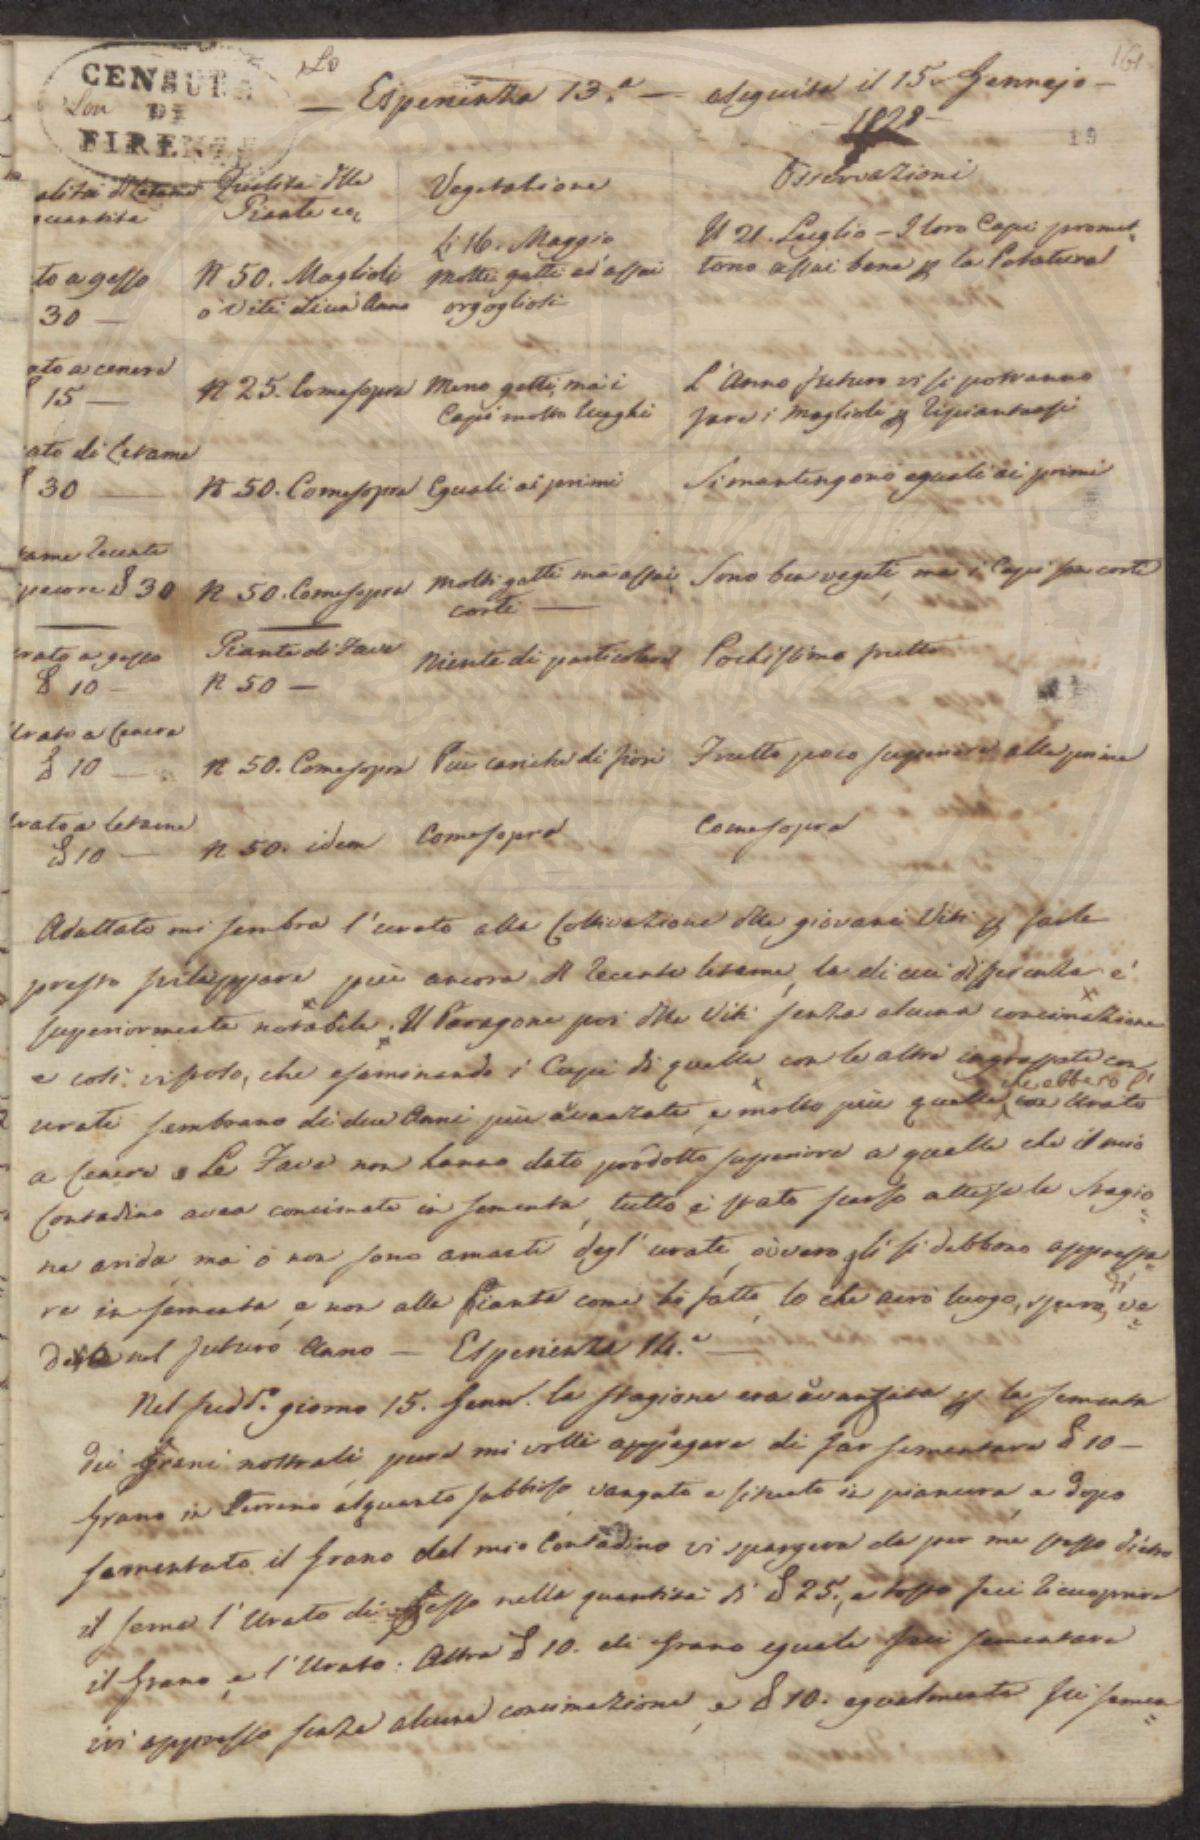 CENSURA
DI
FIRENZE
161
Esperienza 13.ª — eseguita il 15 Gennajo –
– 1828 –
19
Qualità dlle
Piante
Vegetazione
Osservazioni
alità d Letame
quantità
Li 16. Maggio
Il 21. Luglio – I loro Capi promet=
to a gesso
N 50. Maglioli
Molti getti ed assai
tono assai bene p la Potatura
30 —
o Viti di un Anno
orgogliosi
ato a cenere
15 —
N 25. Come sopra
Meno getti, ma i
Capi molto lunghi
L'Anno futuro vi si potranno
fare i Maglioli p ripiantarsi
ato di Letame
30 —
N 50. Come sopra
Eguali ai primi
Si mantengono eguali ai primi
tame recente
pecore £ 30
N 50. Come sopra
Molti getti ma assai
corti —
Sono ben vegeti, ma i Capi corti
rato a gesso
£ 10 –
Piante di Fave
N 50 —
Niente di particolare
Pochissimo frutto
Urato a Cenere
£ 10 —
N 50. Come sopra
Più cariche di fiori
Frutto poco superiore alle prime
Urato a letame
£ 10 —
N 50. idem
Come sopra
Come sopra
Adattato mi sembra l'urato alla Coltivazione dlle giovani Viti p farle
presto sviluppare più ancora dl recente letame, la di cui differenza è
superiormente notabile. Il Paragone poi dlle Viti senza alcuna concimazione
e così visto, che esaminando i Capi di quelle con le altre ingrassate con
urati sembrano di due Anni più avanzate, e molto più quelle che ebbero l' Urato
a Cenere. Le Fave non hanno dato prodotto superiore a quelle che il mio
Contadino avea concimate in sementa, tutto è stato scarso attesa la stagio=
ne arida, ma o non sono amanti degl'urati, ovvero gli si debbono appresta=
re in sementa, e non alle Piante come hò fatto, lo che avrò luogo, spero, di ve=
dere nel futuro Anno — Esperienza 14.ª —
Nel sudd.º giorno 15. Genn.º la stagione era avanzata p la sementa
dei Grani nostrali, pure mi volli appagare di far sementare £ 10 –
Grano in Terreno alquanto sabbioso vangato e situato in pianura, e dopo
sementato il Grano dal mio Contadino vi spargeva da per me stesso dietro
il seme l'Urato di Gesso nella quantità di £ 25, e tosto feci ricuoprire
il Grano, e l'Urato. Altre £ 10. di Grano eguale feci sementare
ivi appresso senza alcuna concimazione, e £ 10. egualmente feci semen=